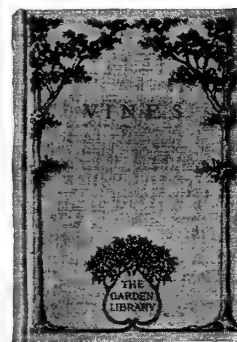 VINES
THE
GARDEN
LIBRARY